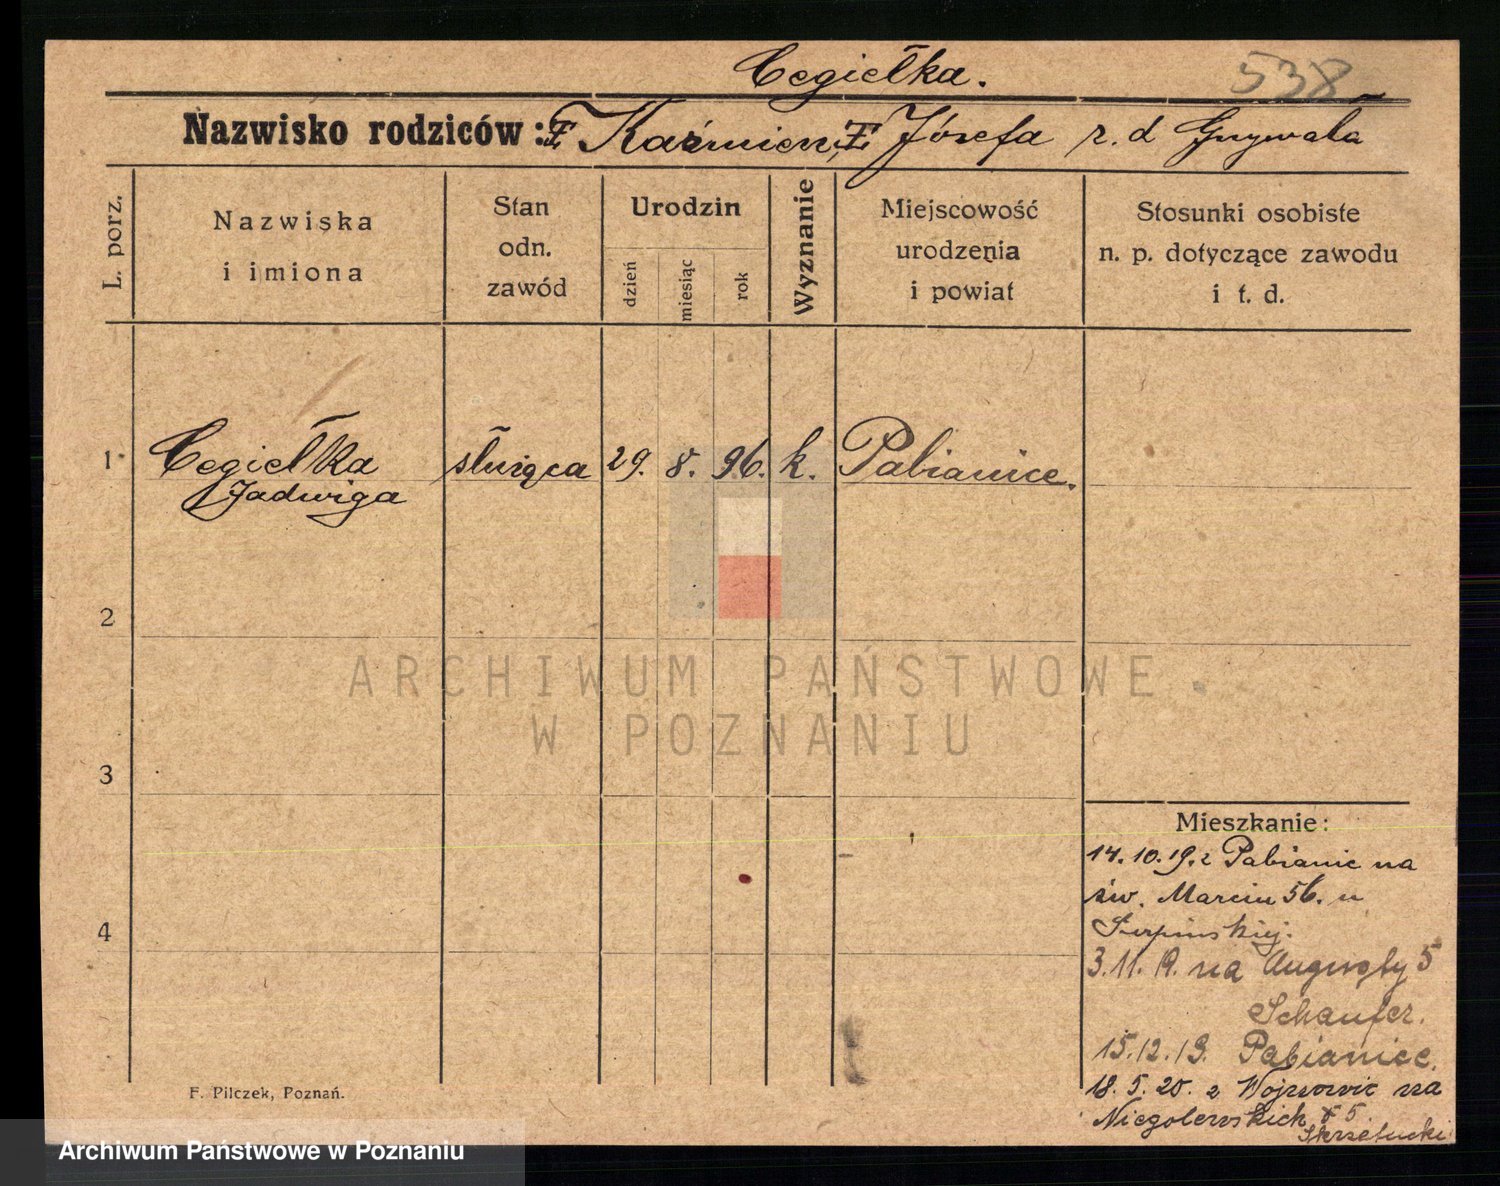 Cegiełka.
538
Nazwisko rodziców: Kaźmierz, Józefa z. d Grzywała
L. porz.
Nazwiska
i imiona
Stan
odn.
zawód
Urodzin
dzień
miesiąc
rok
Wyznanie
Miejscowość
urodzenia
i powiat
Stosunki osobiste
n. p. dotyczące zawodu
i t. d.
1 Cegiełka służąca 29. 8. 96. k. Pabianice.
Jadwiga
2
3
4
Mieszkanie:
14.10.19. z Pabianic na
św. Marcin 56. u
Sierpińskiej.
3.11.19. na Augusty 5
Schaufer.
15.12.19. Pabianice.
18.5.20. z na
Niegolewskich 5.
Skrzetucki
F. Pilczek, Poznań.
ARCHIWUM PAŃSTWOWE
W POZNANIU
Archiwum Państwowe w Poznaniu